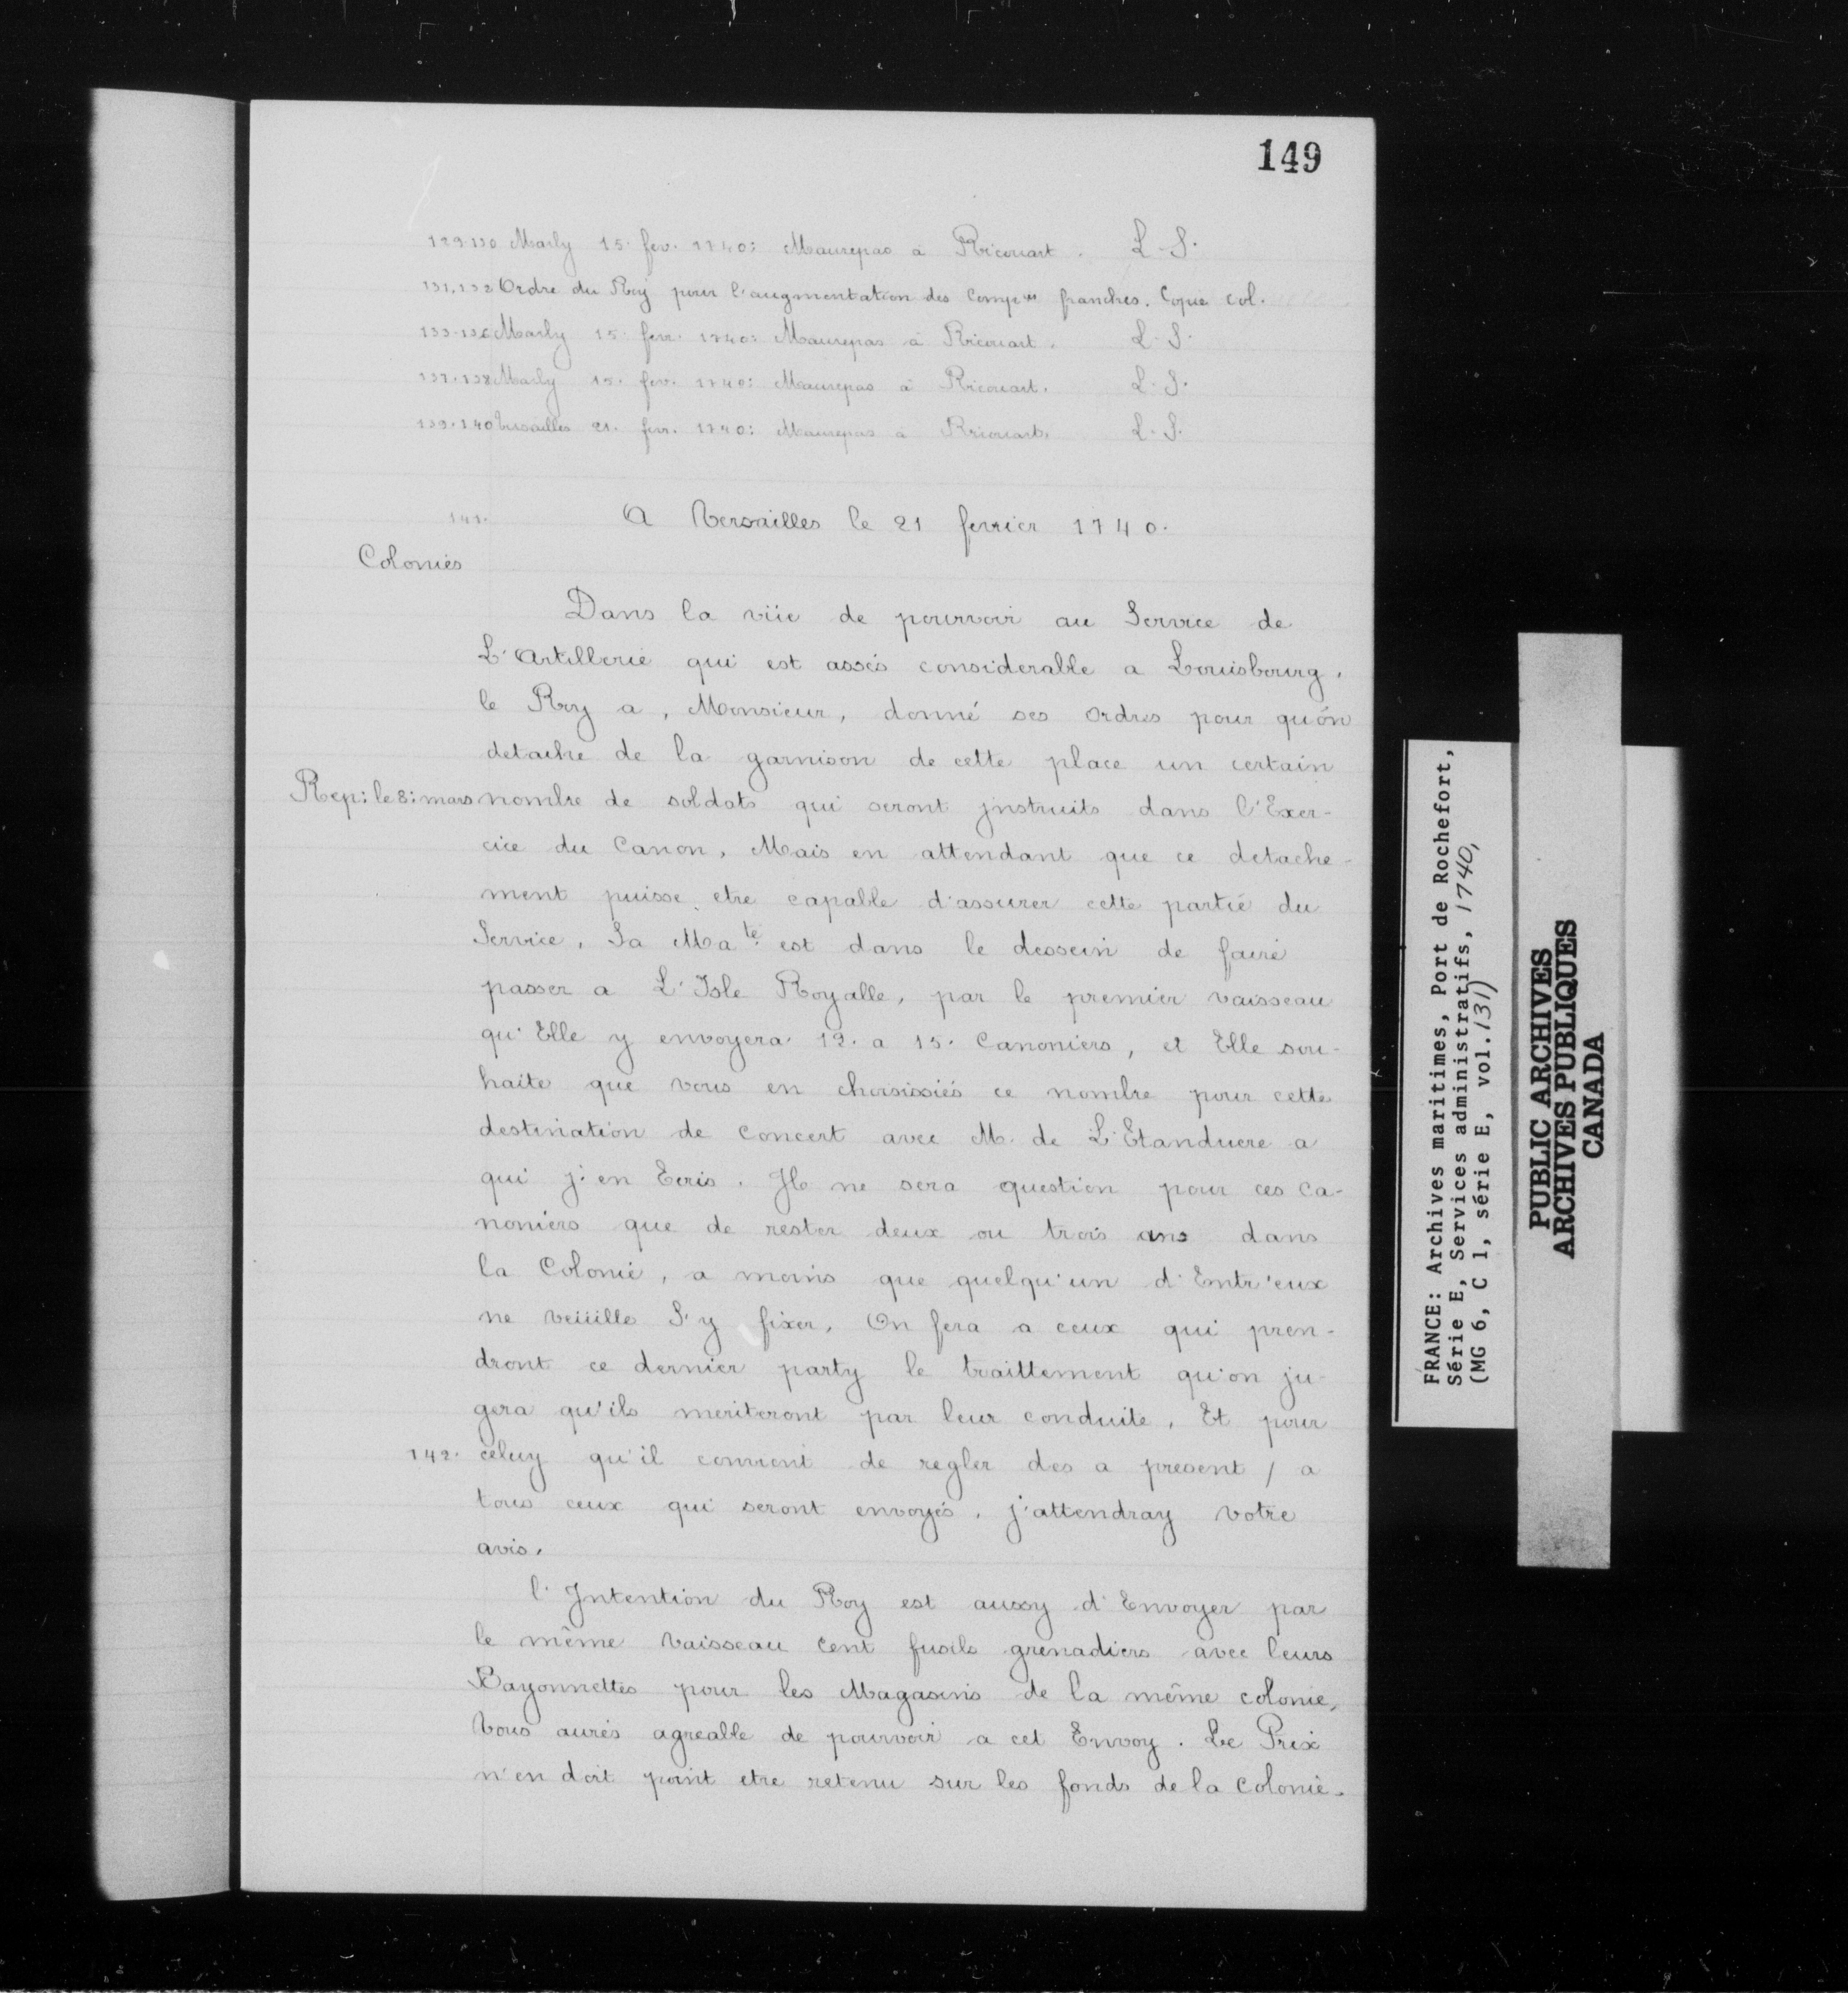 149
129.130 Marly 15. fev. 1740: Maurepas à Ricouart. L. S.
131.132 Ordre du Roy pour l'augmentation des Comp.es franches. Copie col.
133-136 Marly 15 fevr. 1740: Maurepas à Ricouart. L. S.
137.138 Marly 15. fev. 1740: Maurepas à Ricouart. L. S.
139.140 Versailles 21. fevr. 1740: Maurepas à Ricouart. L. S.
141. A Versailles le 21 fevrier 1740.
Colonies
Dans la vüe de pourvoir au Service de
L'Artillerie qui est assés considerable a Louisbourg,
le Roy a, Monsieur, donné ses Ordres pour qu'on
detache de la garnison de cette place un certain
Rep: le 8: mars nombre de soldats qui seront jnstruits dans l'Exer-
cice du Canon, Mais en attendant que ce detache-
ment puisse etre capable d'assurer cette partie du
Service, Sa Ma.té est dans le dessein de faire
passer a L'Isle Royalle, par le premier vaisseau
qu'Elle y envoyera 12. a 15. Canoniers, et Elle sou-
haite que vous en choisissiés ce nombre pour cette
destination de Concert avec M. de L'Etanduere a
qui j'en Ecris. Jl ne sera question pour ces Ca-
noniers que de rester deux ou trois ans dans
la Colonie, a moins que quelqu'un d'Entr'eux
ne veüille S'y fixer. On fera a ceux qui pren-
dront ce dernier party le traittement qu'on ju-
gera qu'ils meriteront par leur conduite, Et pour
142. celuy qu'il convient de regler des a present / a
tous ceux qui seront envoyés, j'attendray votre
avis.
l'Jntention du Roy est aussy d'Envoyer par
le même Vaisseau Cent fusils grenadiers avec leurs
Bayonnettes pour les Magasins de la même colonie,
Vous aurés agreable de pourvoir a cet Envoy. Le Prix
n'en doit point etre retenu sur les fonds de la Colonie.
FRANCE: Archives maritimes, Port de Rochefort,
Série E, Services administratifs, 1740,
(MG 6, C 1, série E, vol.131)
PUBLIC ARCHIVES
ARCHIVES PUBLIQUES
CANADA